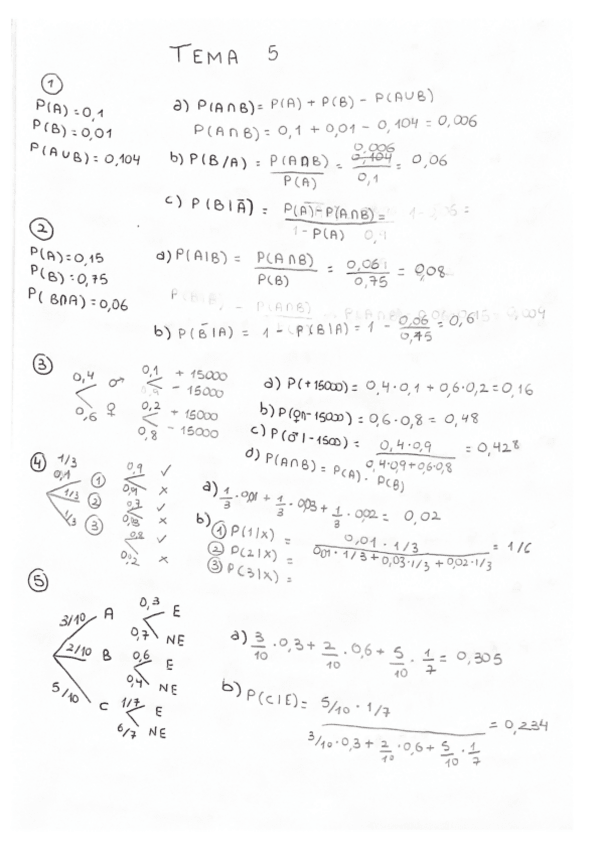 TEMA 5
①
P(A)=0,1
P(B)=0,01
P(A∪B)=0,104
a) P(A∩B)= P(A) + P(B) - P(A∪B)
P(A∩B) = 0,1 + 0,01 - 0,104 = 0,006
b) P(B/A) = P(A∩B)/P(A) = 0,006/0,1 = 0,06
c) P(B|Ā) = P(A)-P(A∩B)/1-P(A) =
②
P(A)=0,15
P(B)=0,75
P(B∩A)=0,06
a) P(A|B) = P(A∩B)/P(B) = 0,06/0,75 = 0,08
b) P(B̄|A) = 1 - P(B|A) = 1 - 0,06/0,75 = 0,6
③
0,4 ♂ 0,1 + 15000
0,9 - 15000
0,6 ♀ 0,2 + 15000
0,8 - 15000
a) P(+15000) = 0,4·0,1 + 0,6·0,2 = 0,16
b) P(♀∩-15000) = 0,6·0,8 = 0,48
c) P(♂|-1500) = 0,4·0,9/0,4·0,9+0,6·0,8 = 0,428
d) P(A∩B) = P(A) · P(B)
④
1/3 ① 0,9 ✓
x
1/3 ② ✓
x
1/3 ③ ✓
0,2 x
a) 1/3 · 0,01 + 1/3 · 0,03 + 1/3 · 0,02 = 0,02
b) ① P(1|x) = 0,01 · 1/3/0,01 · 1/3 + 0,03·1/3 + 0,02·1/3 = 1/6
② P(2|x) =
③ P(3|x) =
⑤
3/10 A 0,3 E
0,7 NE
2/10 B 0,6 E
0,4 NE
5/10 C 1/7 E
6/7 NE
a) 3/10 · 0,3 + 2/10 · 0,6 + 5/10 · 1/7 = 0,305
b) P(C|E) = 5/10 · 1/7/3/10·0,3 + 2/10·0,6 + 5/10·1/7 = 0,234